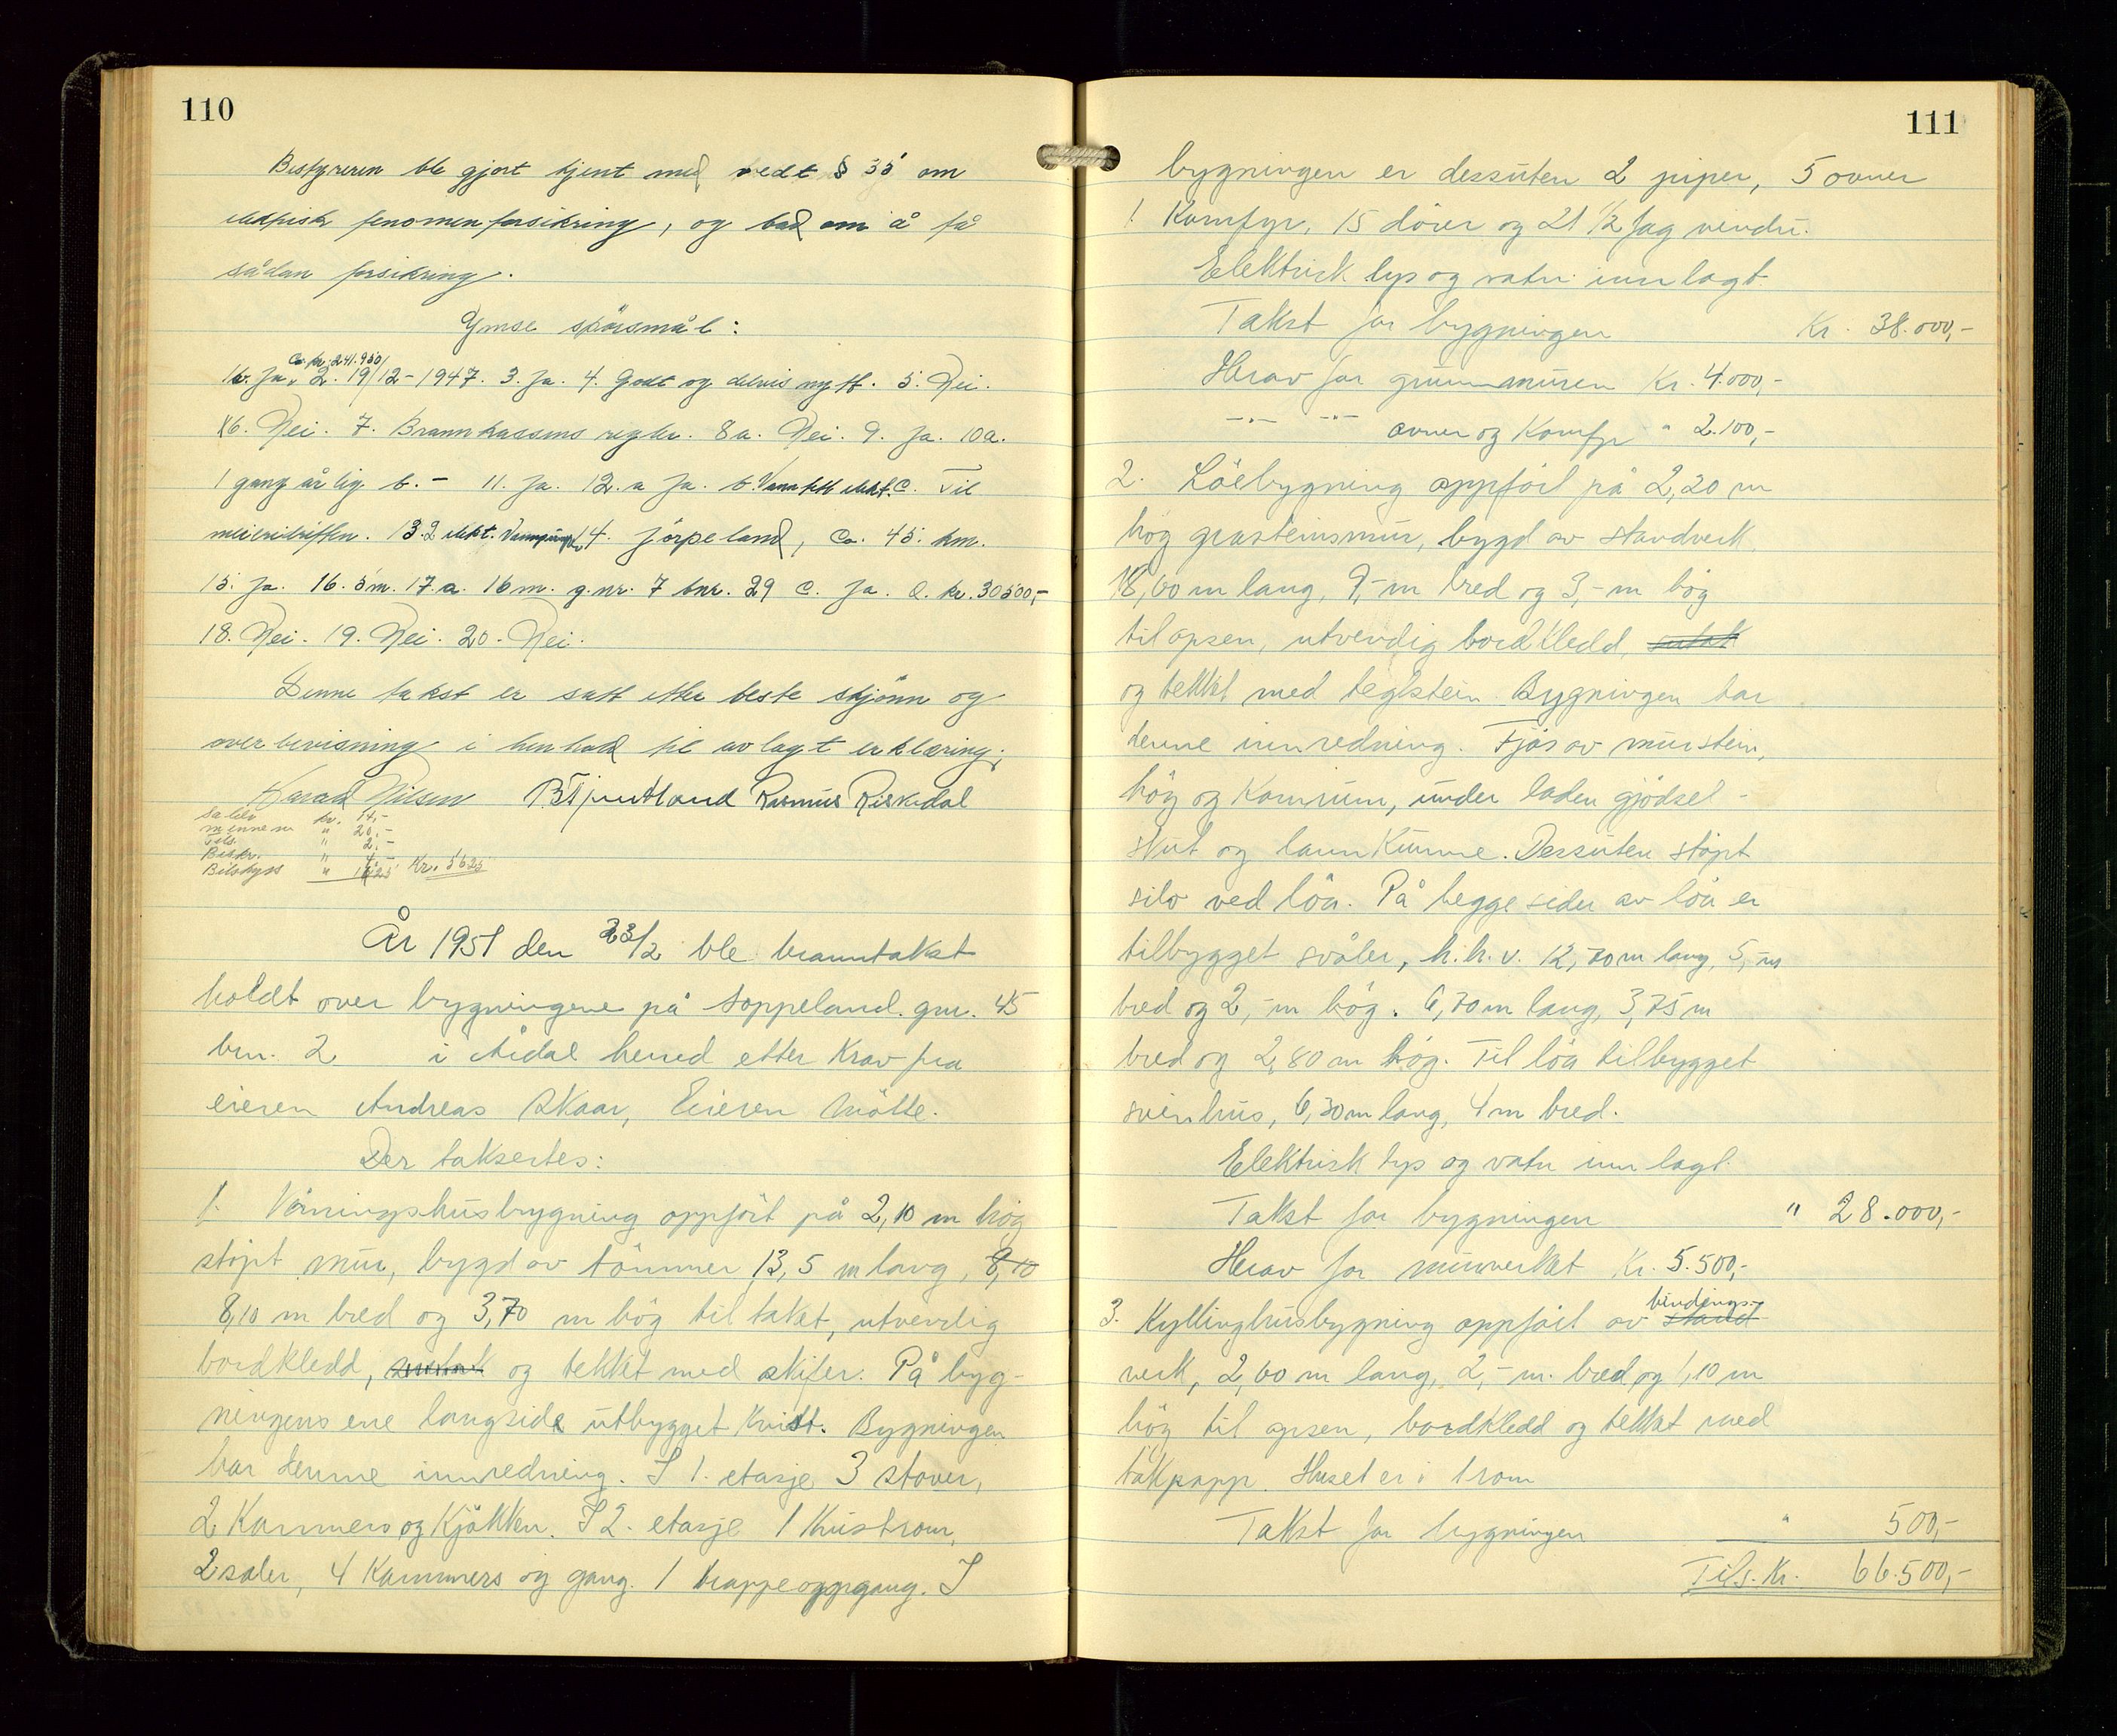 110
Bestyreren ble gjort kjent med vedt § 35 om
elektrisk fenomenforsikring, og bad om å få
sådan forsikring.
Ymse spörsmål:
Ca. kr. 241.950/
1b. Ja, 2. 19/12-1947. 3. Ja. 4. Godt og delvis nytt. 5. Nei.
6. Nei. 7. Brannkassens regler. 8a. Nei. 9. Ja. 10a.
1 gang årlig b. - 11. Ja. 12.a Ja. b. elekt. C. Til
meieridriften. 13. 2 elekt. 14. Jörpeland, Ca. 45 km.
15. Ja. 16. 5m. 17.a. 16m. g.nr. 7 bnr. 29 C. Ja. d. kr. 30500,-
18. Nei. 19. Nei. 20. Nei.
Denne takst er satt etter beste skjönn og
overbevisning i henhold til avlagt erklæring.
Harald Nilsen B. Tjentland Rasmus Riskedal
kr. 14,-
" 20,-
Tels. " 2,-
Beskr. " 4,-
Bilskyss " 16,25 Kr. 5625
År 1951 den 23/2 ble branntakst
holdt over bygningene på Soppeland. gnr. 45
bnr. 2 i Årdal herred etter krav fra
eieren Andreas Skaar, Eieren mötte.
Der taksertes:
1. Våningshusbygning oppfört på 2,10 m hög
stöpt mur, bygd av tömmer 13,5 m lang, 8,10
8,10 m bred og 3,70 m hög til taket, utvendig
bordkledd, og tekket med skifer. På byg-
ningens ene langside utbygget kvist. Bygningen
har denne innredning. I 1. etasje 3 stover,
2 kammers og kjökken. I 2. etasje 1 kvistrom,
2 saler, 4 kammers og gang. 1 trappeoppgang. I
111
bygningen er dessuten 2 piper, 5 ovner
1 Komfyr, 15 dörer og 21 1/2 fag vindu.
Elektrisk lys og vatn innlagt.
Takst for bygningen Kr. 38.000,-
Herav for grunnmuren Kr. 4.000,-
-"- -"- ovner og Komfyr " 2.100,-
2. Löebygning oppfört på 2,20 m
hög grasteinsmur, bygd av standverk
18,60 m lang, 9,- m bred og 3,- m hög
til opsen, utvendig bordkledd, sutak
og tekket med teglstein. Bygningen har
denne innredning. Fjös av murstein,
höy og kornrum, under laden gjödsel-
skut og landkumme. Dessuten stöpt
silo ved löa. På begge sider av löa er
tilbygget svåler, h.h.v. 12,70 m lang, 5,- m
bred og 2,- m hög. 6,70 m lang, 3,75 m
bred og 2,80 m hög. Til löa tilbygget
svinhus, 6,30 m lang, 4 m bred.
Elektrisk lys og vatn innlagt.
Takst for bygningen " 28.000,-
Herav for murverket Kr. 5.500,-
bindings-
3. Kyllinghusbygning oppfört av stand
verk, 2,60 m lang, 2,- m. bred og 1,10 m
hög til opsen, bordkledd og tekket med
takpapp. Huset er i 1 rom
Takst for bygningen " 500,-
Tils. Kr. 66.500,-